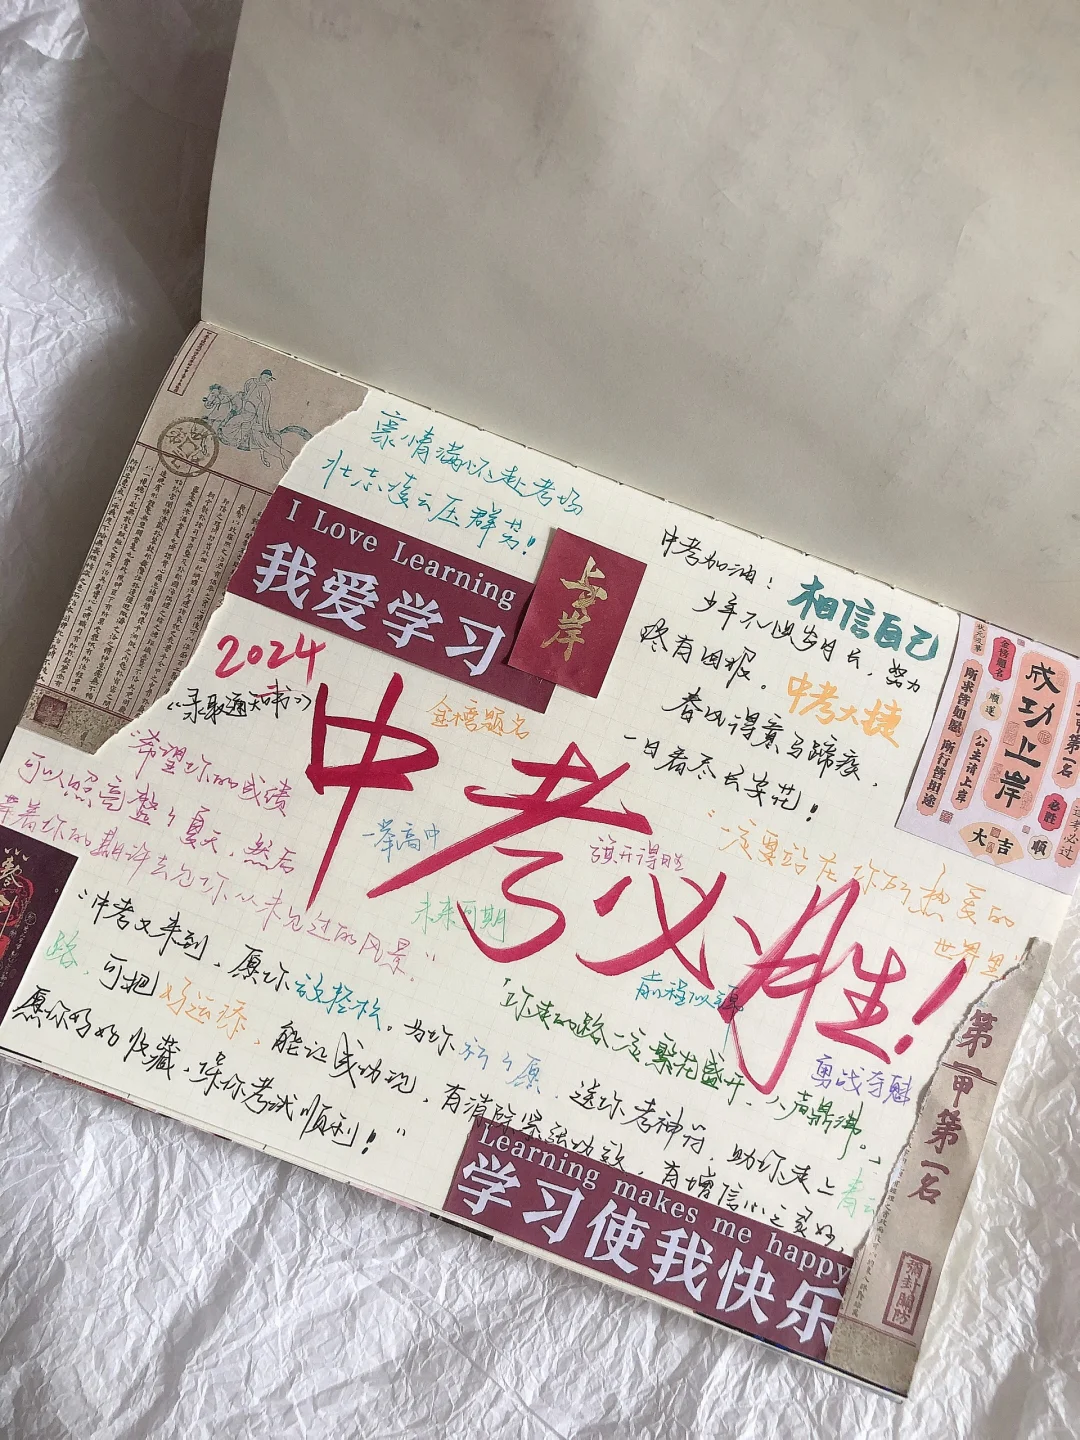 豪情满怀赴考场
壮志凌云压群芳！
I Love Learning
我爱学习
上岸
中考加油！
相信自己
少年不惧岁月长，努力
终有回报。
中考大捷
春风得意马蹄疾，
一日看尽长安花！
成功上岸
金榜题名
状元及第
顺遂
所求皆如愿
所行皆坦途
公主请上岸
必胜
大吉
顺
逢考必过
2024
《录取通知书》
金榜题名
中考必胜！
"希望你的成绩
可以照亮整个夏天，然后
带着你的期许去见你从未见过的风景。"
一举高中
旗开得胜
未来可期
前程似锦
勇战夺魁
"一定要站在你所热爱的
世界里"
"你走的路一定繁花盛开，人声鼎沸。"
"中考又来到，愿你放轻松。为你祈个愿，送你考神符，助你走上青云
路，可把好运添，能让成功现，有消除紧张功效，有增信心之美妙，
愿你好好收藏，保你考试顺利！"
Learning makes me happy
学习使我快乐
第一甲第一名
弥封关防